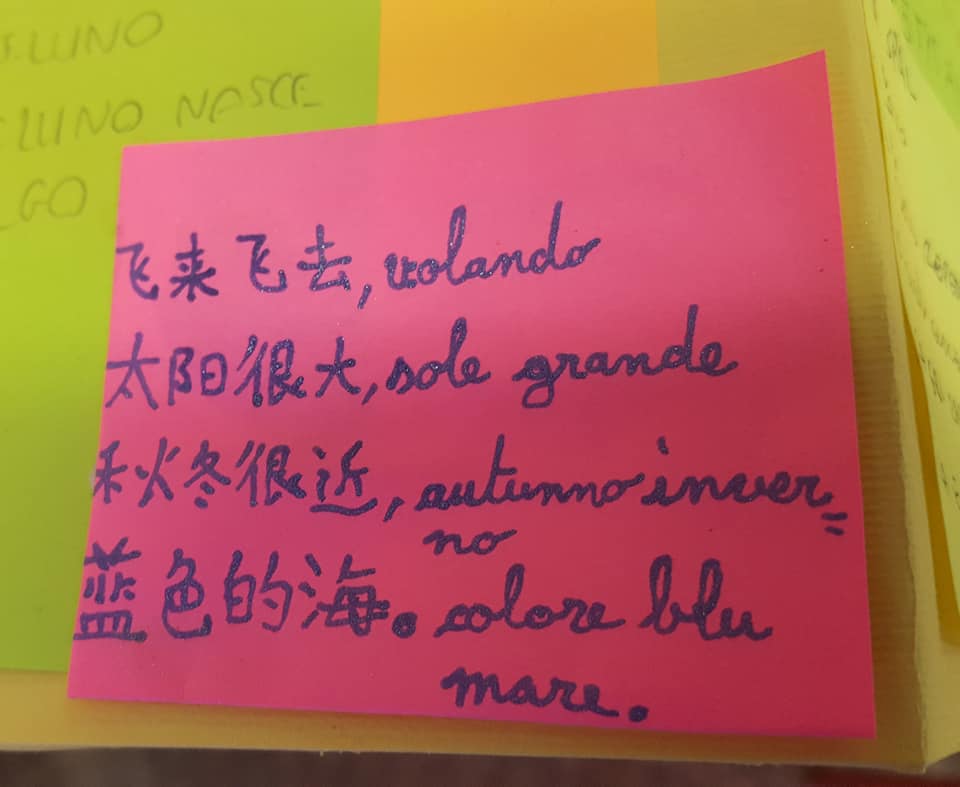 LUNO NASCE
GO
飞来飞去, volando
太阳很大, sole grande
秋冬很近, autunno inver=
no
蓝色的海。colore blu
mare.